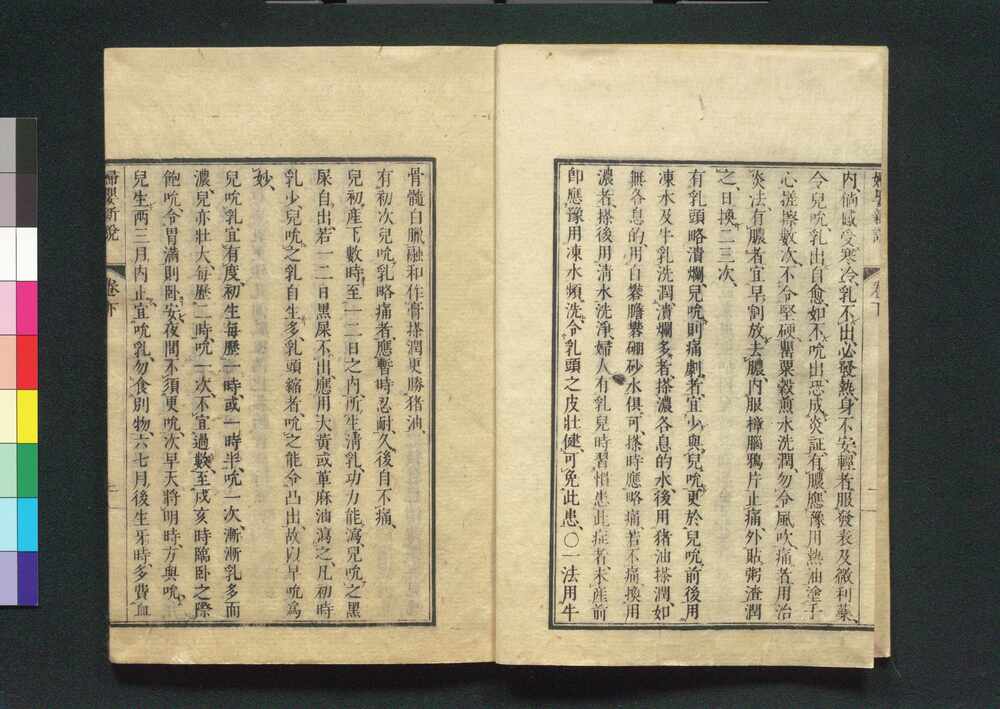 內、倘感受寒冷、乳不出、必發熱、身不安、輕者服發表及微利藥、
令兒吮乳出自愈、如不吮出、恐成炎証、有膿應豫用熱油塗手
心搓擦數次、不令堅硬、罌粟殼煎水洗潤、勿令風吹、痛者用治
炎法、有膿者宜早割放去膿、內服樟腦鴉片止痛、外貼粥渣潤
之、日換二三次、
有乳頭略潰爛、兒吮則痛劇者、宜少與兒吮、更於兒吮前後用
凍水及牛乳洗潤、潰爛多者、搽濃各息的水、後用猪油搽潤、如
無各息的、用白礬膽礬硼砂水俱可、搽時應略痛、若不痛換用
濃者、搽後用清水洗淨、婦人有乳兒時習慣患此症者、未產前
卽應豫用凍水頻洗、令乳頭之皮壯健、可免此患、〇一法用牛
骨髓白臘融和作膏搽潤、更勝猪油、
有初次兒吮乳略痛者、應暫時忍耐、久後自不痛、
兒初產下數時、至一二日之內、所生清乳、功力能瀉、兒吮之黑
屎自出、若一二日黑屎不出、應用大黄或萆麻油瀉之、凡初時
乳少、兒吮之乳自生多、乳頭縮者、吮之能令凸出、故以早吮爲
妙、
兒吮乳宜有度、初生每歷一時、或一時半、吮一次、漸漸乳多而
濃、兒亦壯大、每歷二時、吮一次、不宜過數、至戌亥時臨卧之際
飽吮、令胃滿則卧安、夜間不須更吮、次早天將明時、方與吮、
兒生兩三月內、止宜吮乳、勿食別物、六七月後生牙時、多費血
婦嬰新說
卷下